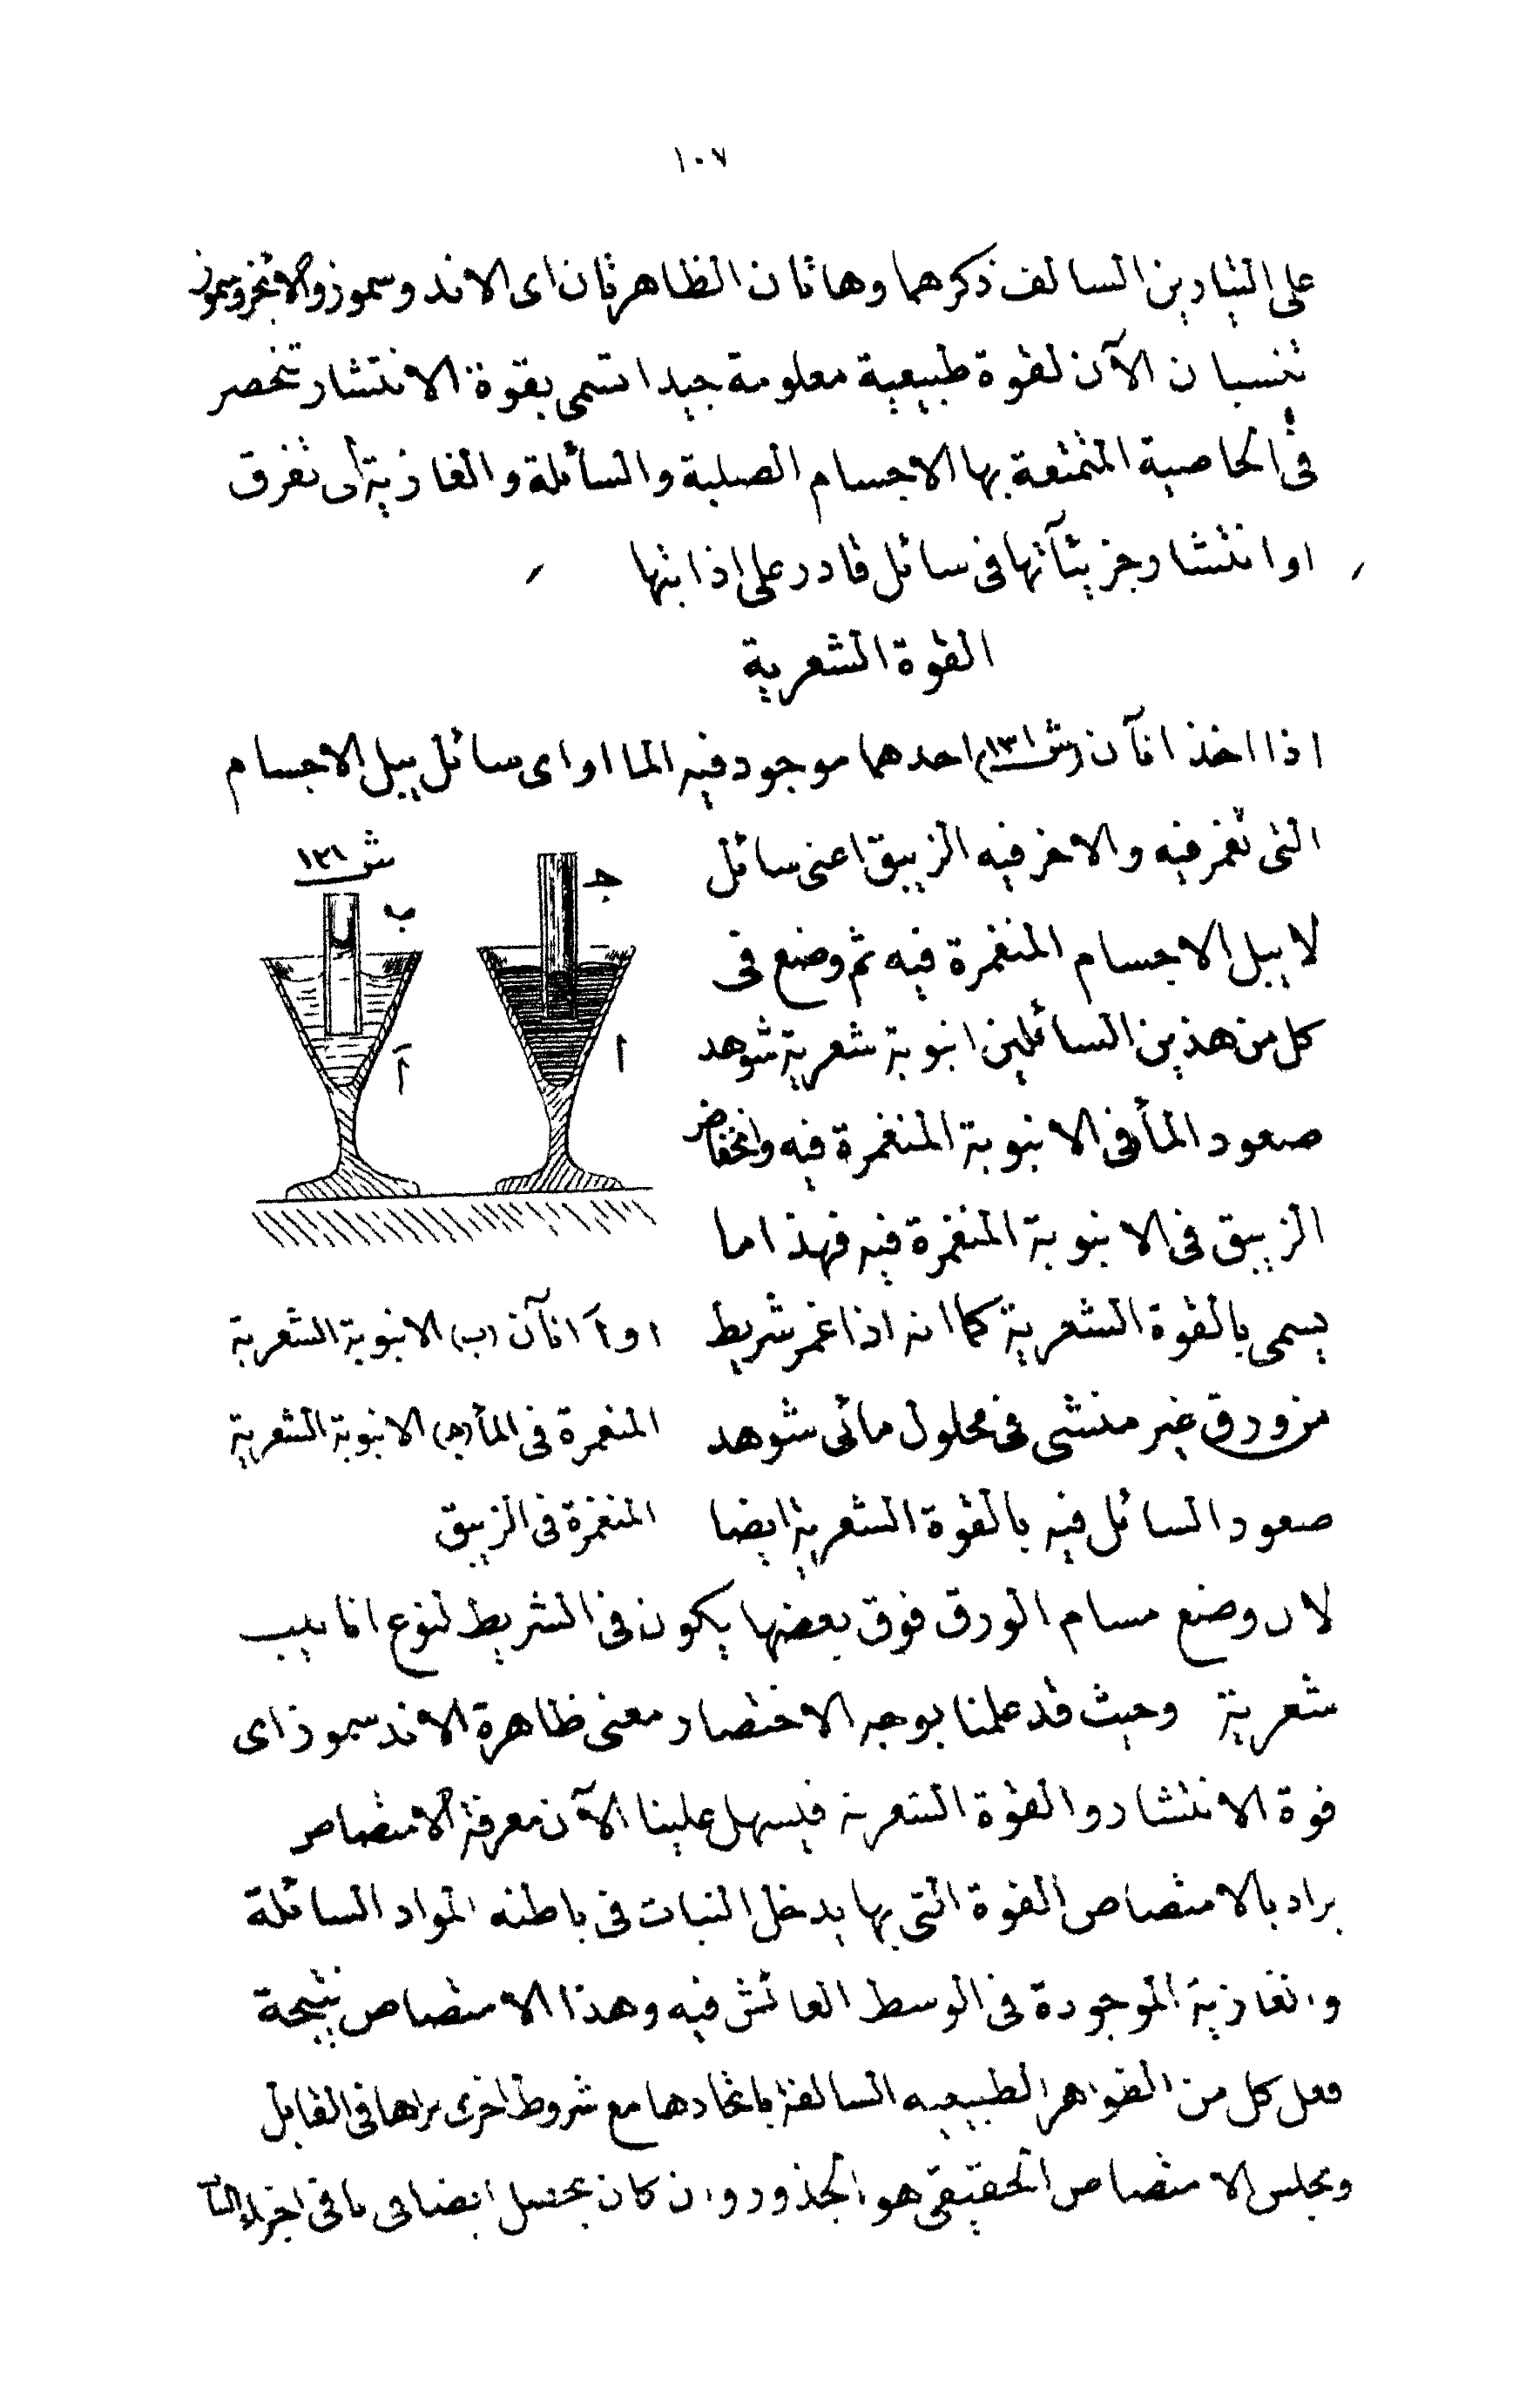 ١٠٧
على التيارين السالف ذكرهما وهاتان الظاهرتان اى الاندوسموز والاجزوسموز
تنسبان الآن لقوة طبيعية معلومة جيدا تسمى بقوة الانتشار تنحصر
فى الخاصية المتمتعة بها الاجسام الصلبة والسائلة والغازية أى تفرق
او انتشار جزيئآتها فى سائل قادر على اذابتها
القوة الشعرية
اذا اخذ انآن (ش ١٣١) احدهما موجود فيه الماا واى سائل يبل الاجسام
التى تغمر فيه والاخر فيه الزيبق اعنى سائل
لا يبل الاجسام المنغمرة فيه ثم وضع فى
كل من هذين السائلين انبوبة شعرية شوهد
صعود المأ فى الانبوبة المنغمرة فيه وانخفاض
الزيبق فى الانبوبة المنغمرة فيه فهذا ما
يسمى بالقوة الشعرية كما انه اذا غمر شريط
من ورق غير منشى فى محلول مائى شوهد
صعود السائل فيه بالقوة الشعرية ايضا
ش ١٣١
ب
جـ
آ
ا
ا وآ انآن (ب) الانبوبة الشعرية
المنغمرة فى المأ (جـ) الانبوبة الشعرية
المنغمرة فى الزيبق
لان وضع مسام الورق فوق بعضها يكون فى الشريط لنوع انابيب
شعرية وحيث قد علمنا بوجه الاختصار معنى ظاهرة الاندسموز اى
قوة الانتشار والقوة الشعرية فيسهل علينا الآن معرفة الامتصاص
يراد بالامتصاص القوة التى بها يدخل النبات فى باطنه المواد السائلة
والغازية الموجودة فى الوسط العائش فيه وهذا الامتصاص نتيجة
فعل كل من الظواهر الطبيعيه السالفة باتحادها مع شروط اخرى نراها فى القابل
ومجلس الامتصاص الحقيقى هو الجذور وان كان يحصل ايضا فى باقى اجزاء النبات